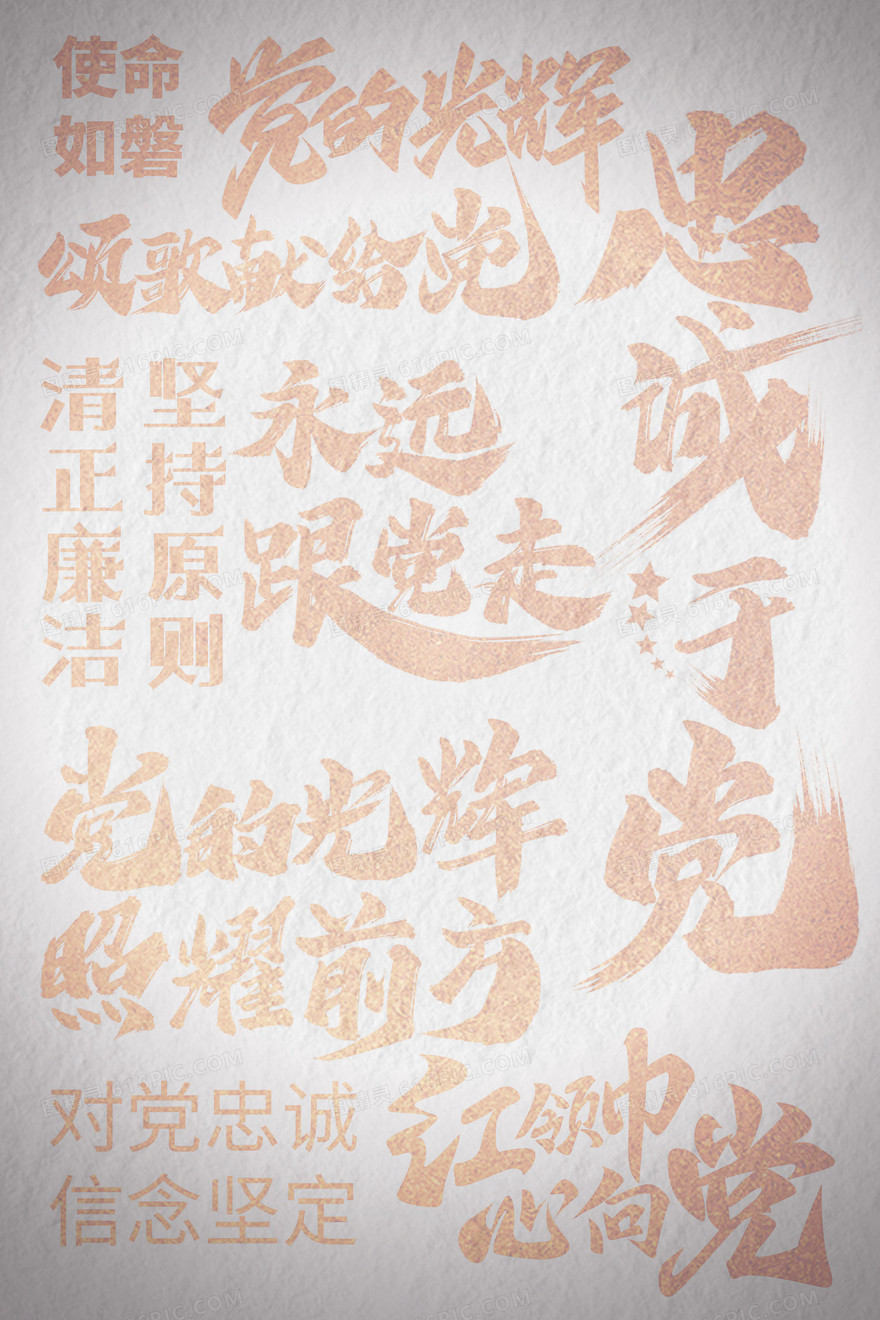 使命
如磐
党的光辉
颂歌献给党
忠诚于党
坚持原则
清正廉洁
永远
跟党走
党的光辉
照耀前方
对党忠诚
信念坚定
红领巾
心向党